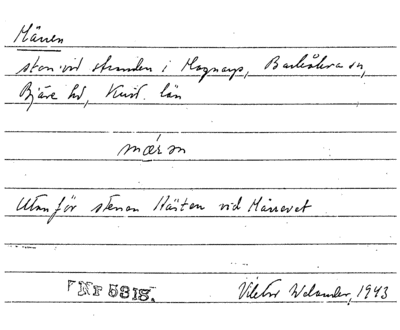 Märren
sten vid stranden i Magnarp, Barkåkra sn,
Bjäre hd, Krist. län
mǽrən
Utanför stenen Hästen vid Märrevet
Nr 5315.
Viktor Welander, 1943